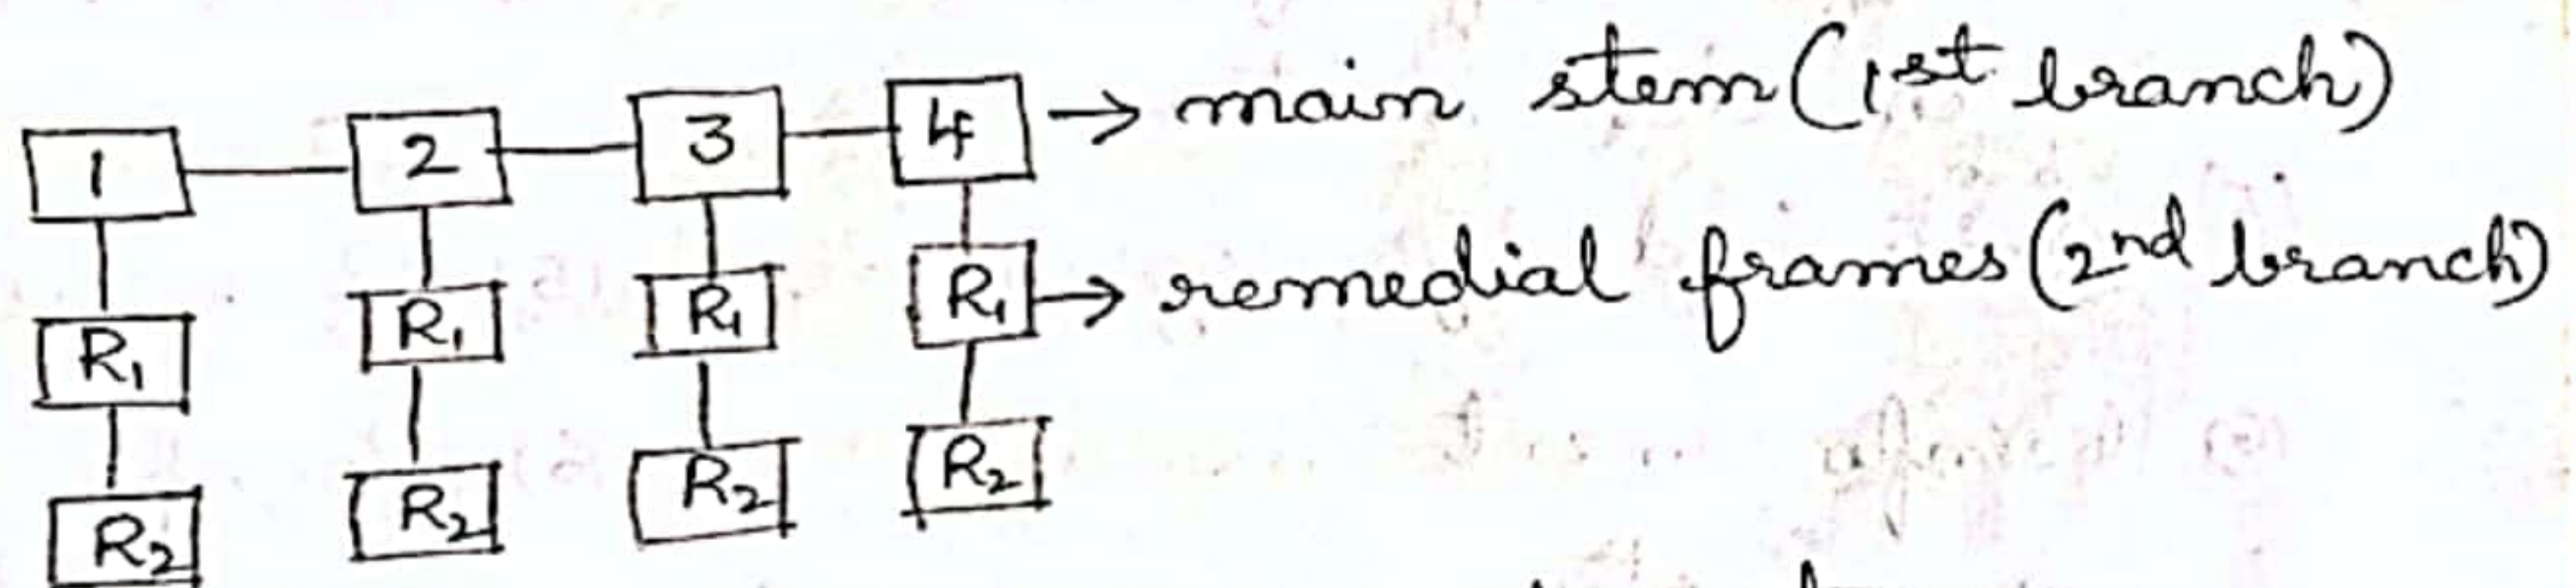 1 2 3 4 → main stem (1st branch)
R1 R1 R1 R1 → remedial frames (2nd branch)
R2 R2 R2 R2